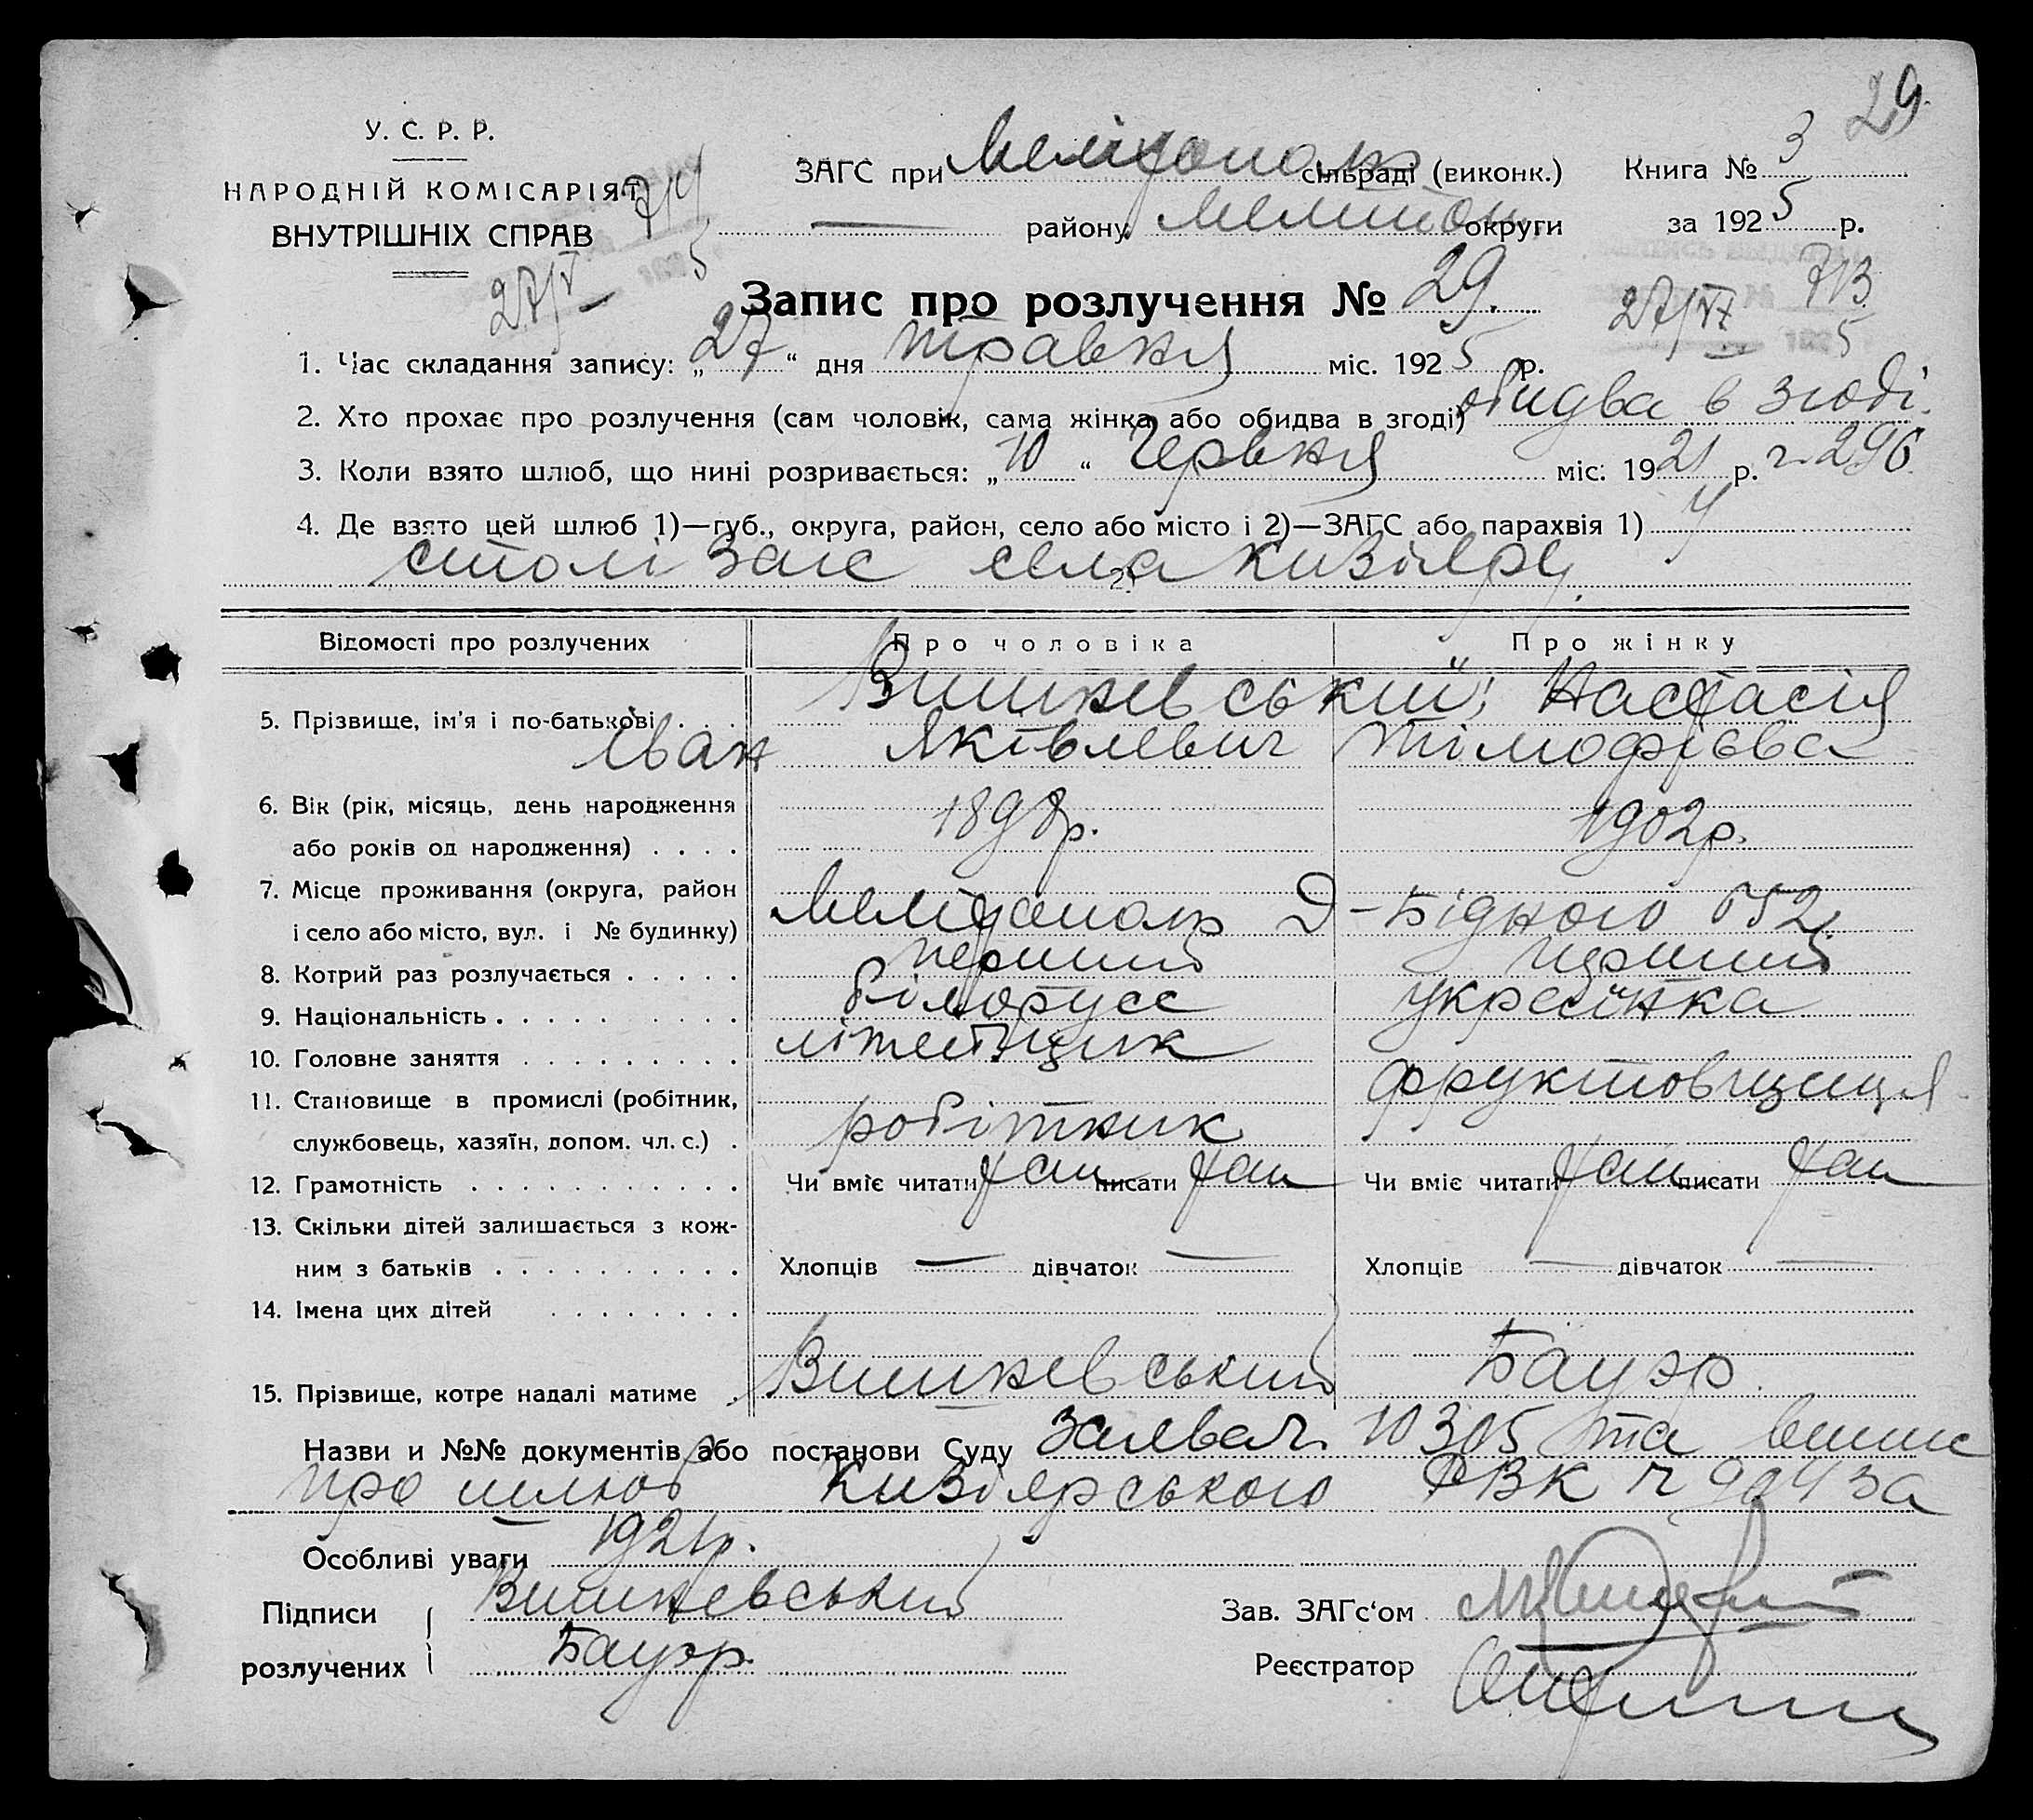 29
У. С. Р. Р.
НАРОДНІЙ КОМІСАРІЯТ
ВНУТРІШНІХ СПРАВ
ЗАГС при Мелітополь сільраді (виконк.) Книга № 3
— району Мелитоп. округи за 1925 р.
27/V 5
Запис про розлучення № 29.
27/VI 713 5
1. Час складання запису: „27“ дня травня міс. 1925 р.
2. Хто прохає про розлучення (сам чоловік, сама жінка або обидва в згоді) обидва в згоді.
3. Коли взято шлюб, що нині розривається: „10“ Червня міс. 1921 р. ч. 296
4. Де взято цей шлюб 1)—губ., округа, район, село або місто і 2)—ЗАГС або парахвія 1) У
столі загс 2) села Кизіяру.
Відомості про розлучених Про чоловіка Про жінку
5. Прізвище, ім'я і по-батькові . . . Вишневський; Настасія
Іван Яківлевич Тімофієва
6. Вік (рік, місяць, день народження
або років од народження) . . . . 1898р. 1902р.
7. Місце проживання (округа, район
і село або місто, вул. і № будинку) Мелітополь Д-Бідного 652.
8. Котрий раз розлучається . . . . . перший перший
9. Національність . . . . . . . . . білорусс українка
10. Головне заняття . . . . . . . . . літейщик
11. Становище в промислі (робітник, фруктовщиця
службовець, хазяїн, допом. чл. с.) . робітник
12. Грамотність . . . . . . . . . . . . Чи вміє читати так писати так Чи вміє читати так писати так
13. Скільки дітей залишається з кож-
ним з батьків . . . . . . . . . . Хлопців — дівчаток — Хлопців — дівчаток —
14. Імена цих дітей . . . . . . . .
15. Прізвище, котре надалі матиме . Вишневський Бауэр.
Назви и №№ документів або постанови Суду заява ч. 10305 та випис
про шлюб Кизіярського РВК ч 904 за
Особливі уваги 1921р.
Підписи Вишневський Зав. ЗАГс‘ом
розлучених Бауэр. Реєстратор